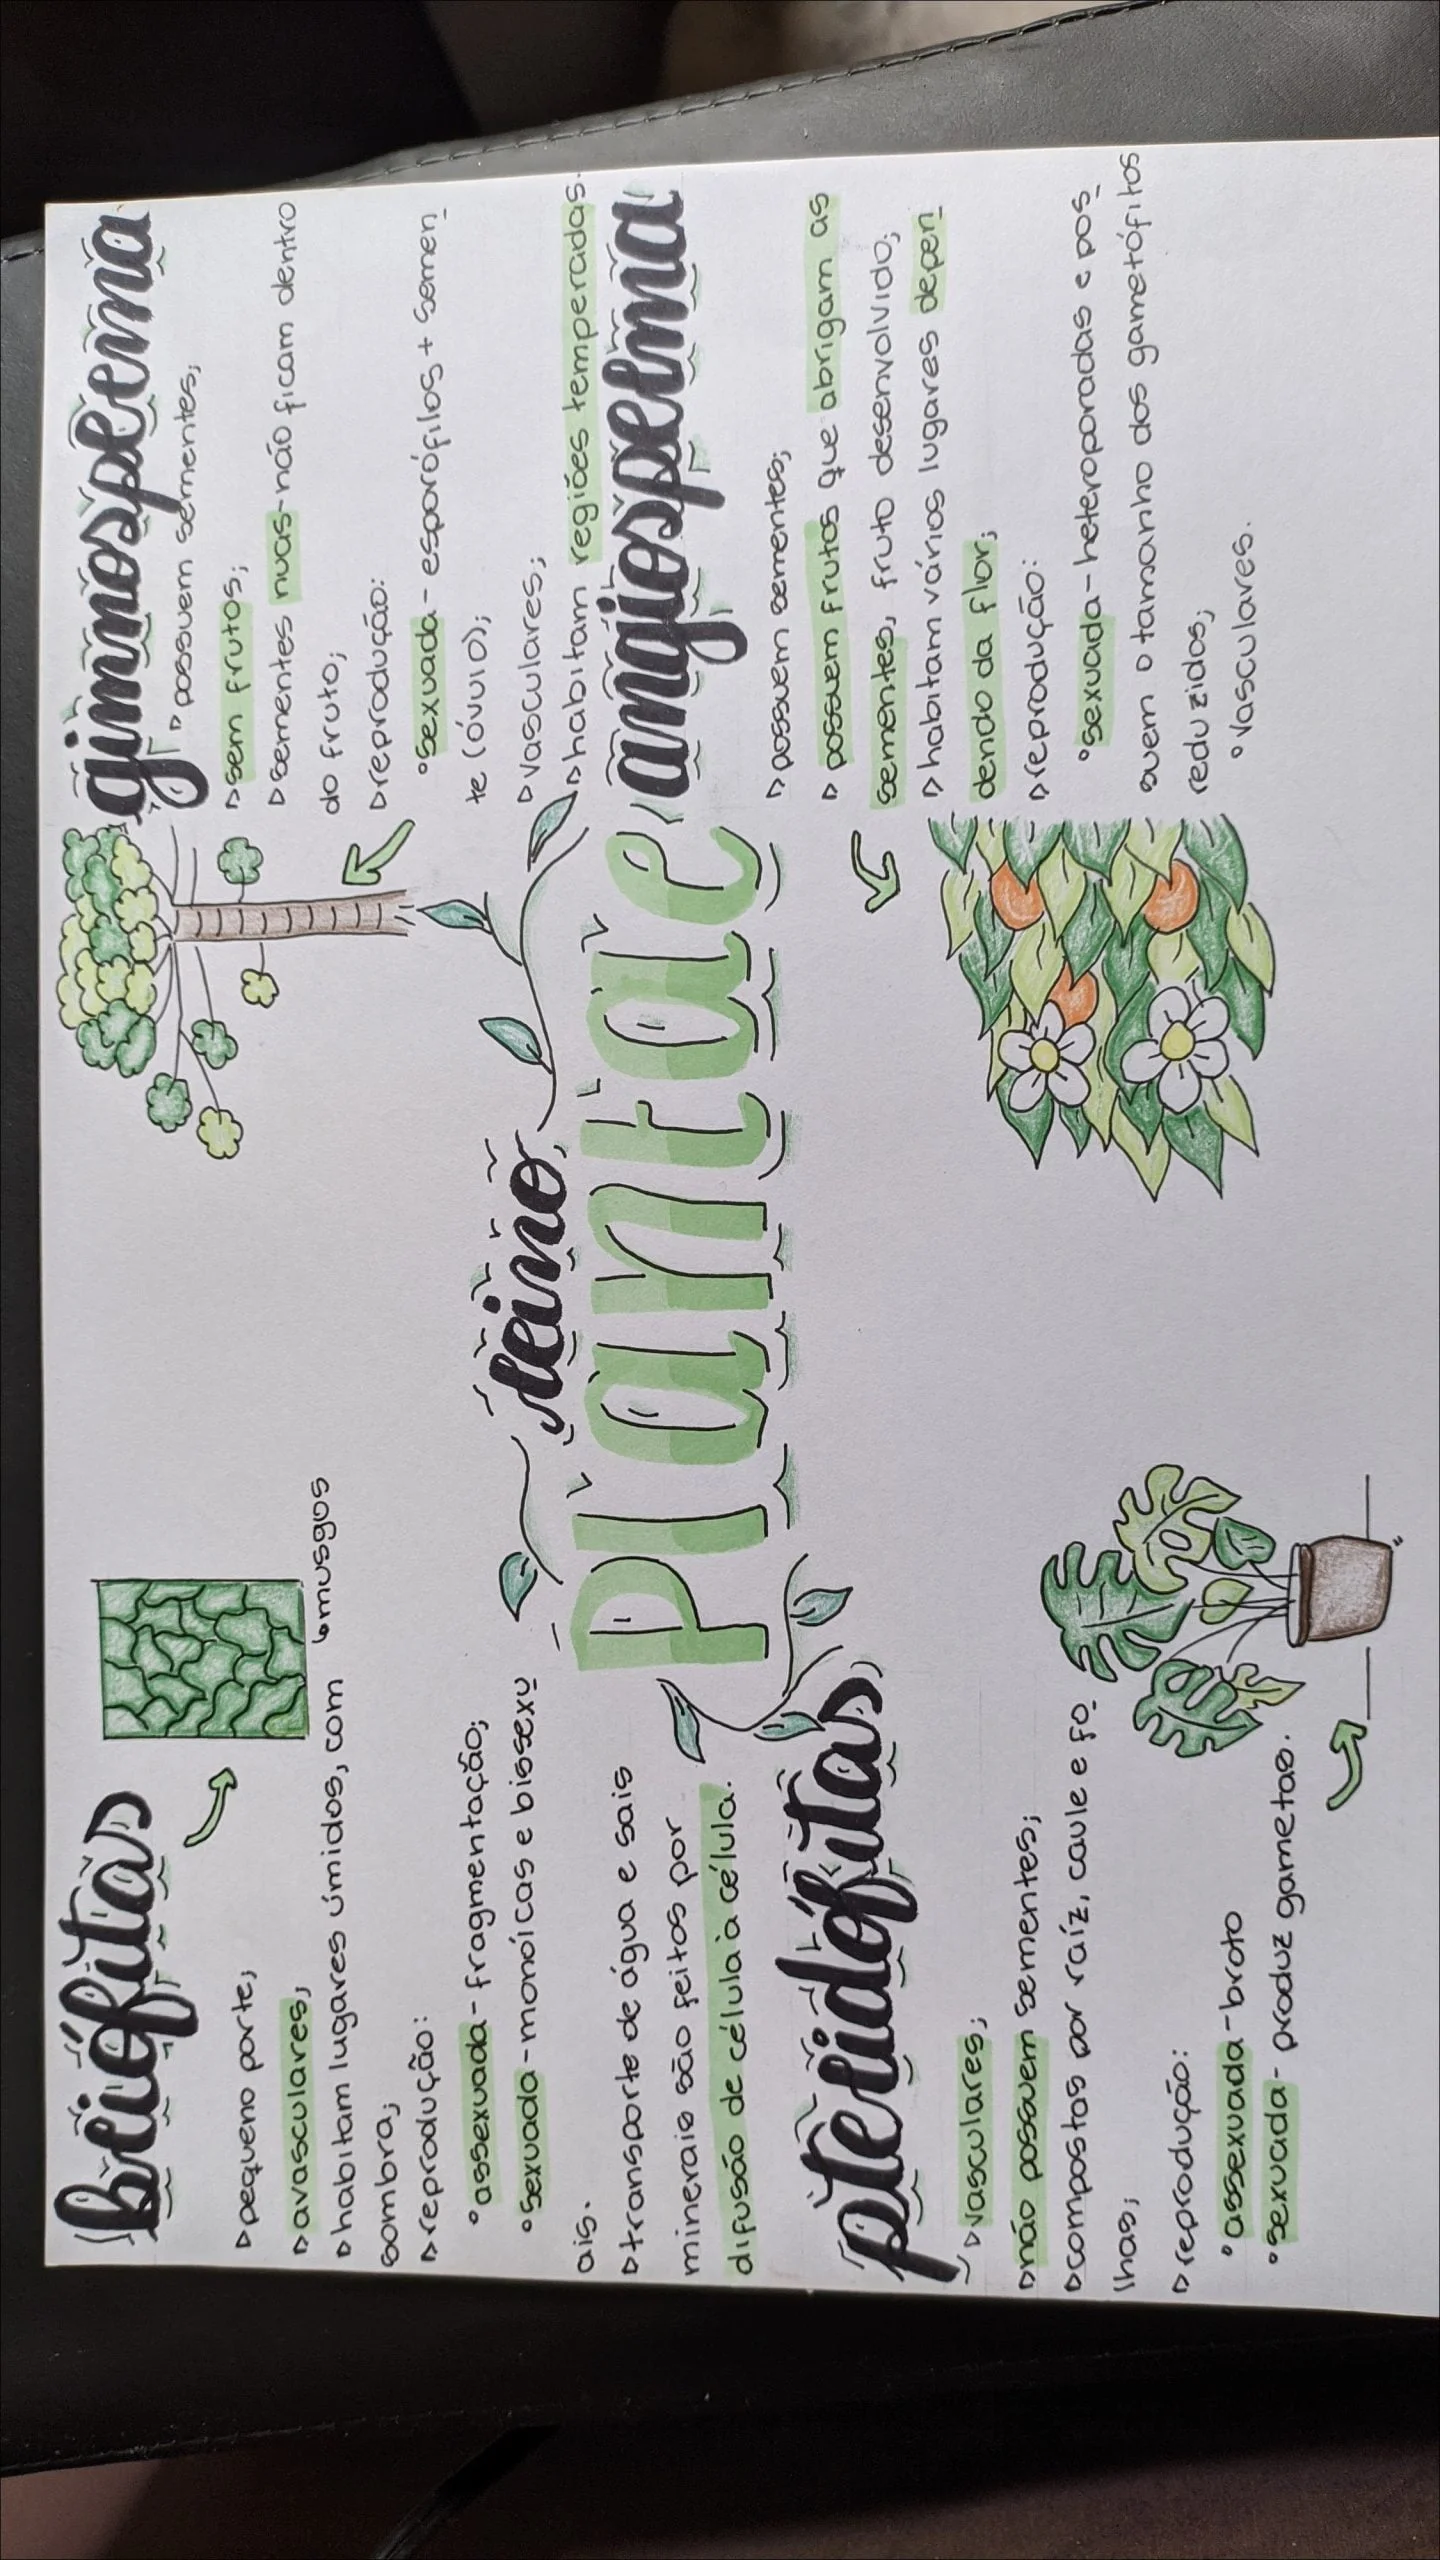 briófitas
▹pequeno porte;
▹avasculares;
▹habitam lugares úmidos, com
sombra;
▹reprodução:
°assexuada-fragmentação;
°sexuada-monóicas e bissexu
ais.
▹transporte de água e sais
minerais são feitos por
difusão de célula à célula.
↳musgos
reino
Plantae
pteridófitas
▹vasculares;
▹não possuem sementes;
▹compostas por raíz, caule e fo
lhas;
▹reprodução:
°assexuada-broto
°sexuada- produz gametas.
gimnosperma
▹possuem sementes;
▹sem frutos;
▹sementes nuas-não ficam dentro
do fruto;
▹reprodução:
°sexuada- esporófilos + semen
te (óvulo);
▹vasculares;
▹habitam regiões temperadas.
angiosperma
▹possuem sementes;
▹possuem frutos que abrigam as
sementes, fruto desenvolvido;
▹habitam vários lugares depen
dendo da flor;
▹reprodução:
°sexuada-heteroporadas e pos
suem o tamanho dos gametófitos
reduzidos;
°vasculares.